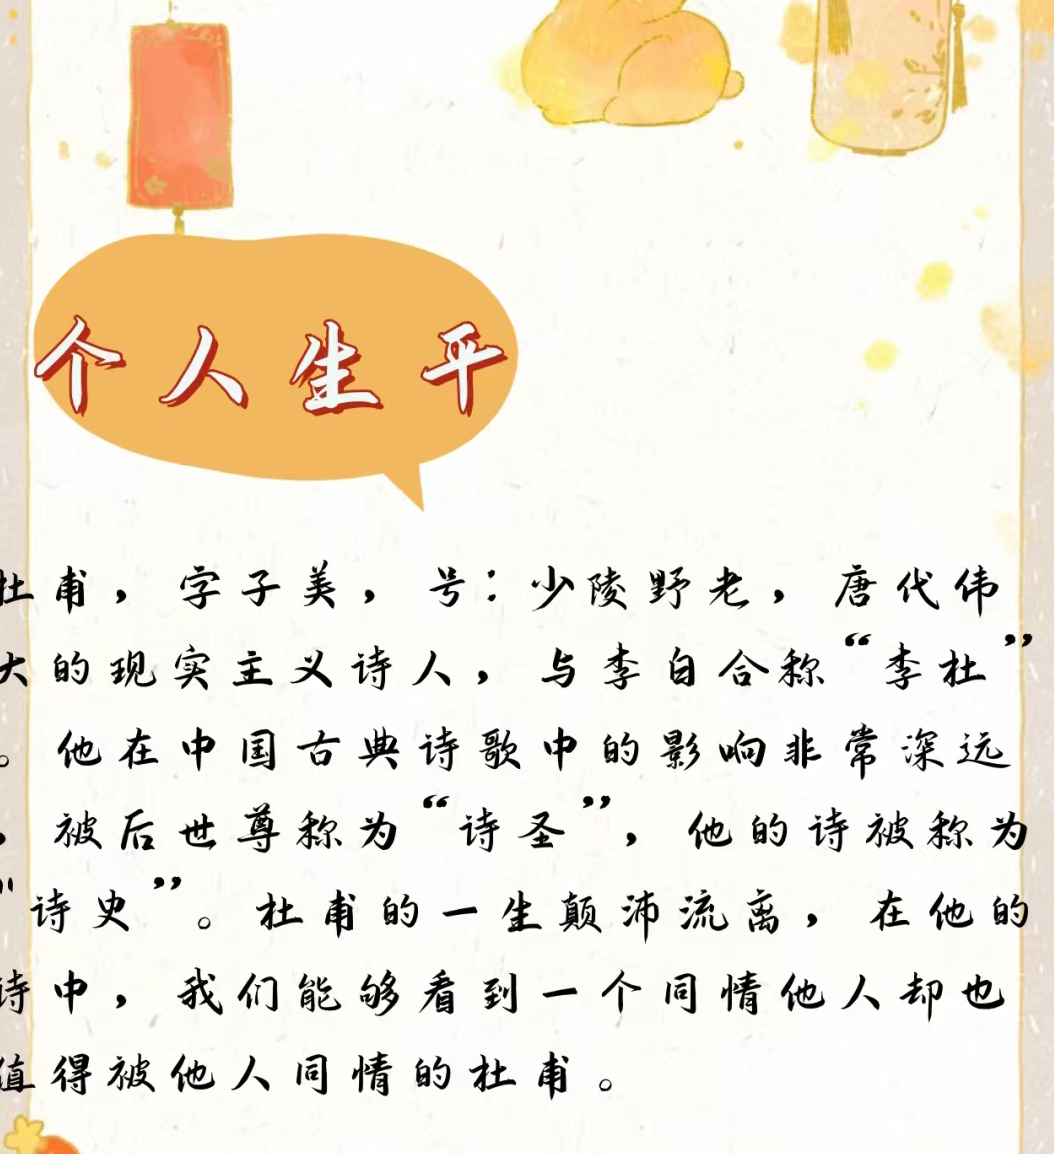 个人生平
杜甫，字子美，号：少陵野老，唐代伟
大的现实主义诗人，与李白合称“李杜”
。他在中国古典诗歌中的影响非常深远
，被后世尊称为“诗圣”，他的诗被称为
“诗史”。杜甫的一生颠沛流离，在他的
诗中，我们能够看到一个同情他人却也
值得被他人同情的杜甫。